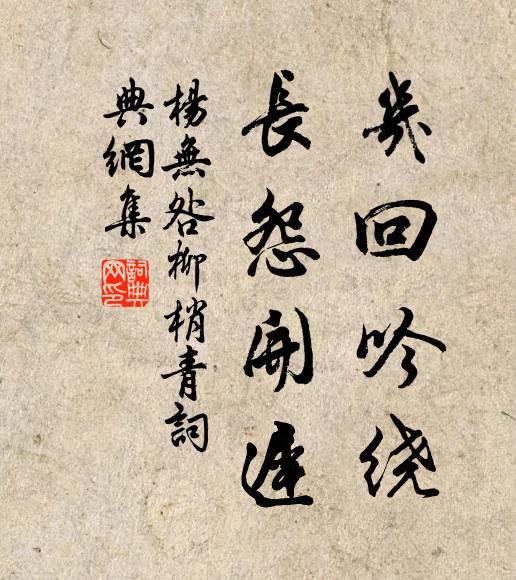 幾回吟绕
長怨開遲
楊無咎柳梢青詞
典網集
詞典网印